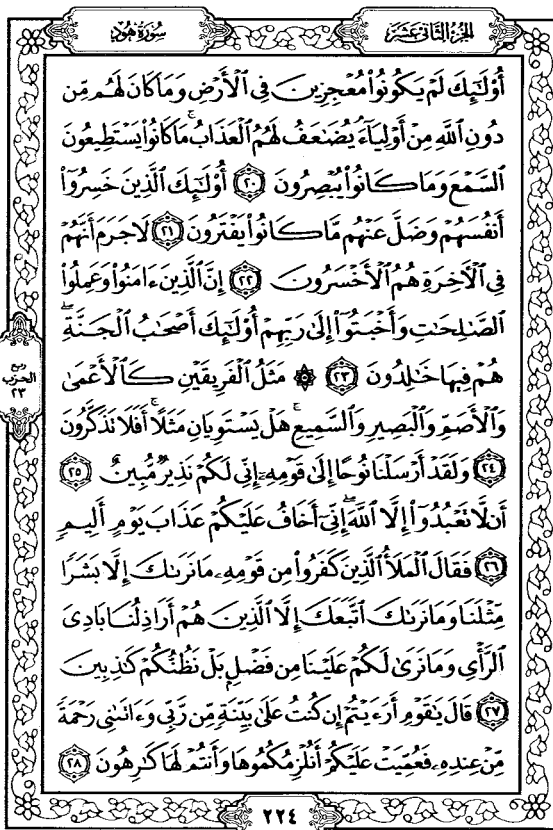 سُورَةُ هُودٍ
الجُزْءُ الثَّانِي عَشَرَ
أُوْلَٰٓئِكَ لَمْ يَكُونُوا۟ مُعْجِزِينَ فِى ٱلْأَرْضِ وَمَا كَانَ لَهُم مِّن
دُونِ ٱللَّهِ مِنْ أَوْلِيَآءَ ۘ يُضَٰعَفُ لَهُمُ ٱلْعَذَابُ ۚ مَا كَانُوا۟ يَسْتَطِيعُونَ
ٱلسَّمْعَ وَمَا كَانُوا۟ يُبْصِرُونَ ٢٠ أُوْلَٰٓئِكَ ٱلَّذِينَ خَسِرُوٓا۟
أَنفُسَهُمْ وَضَلَّ عَنْهُم مَّا كَانُوا۟ يَفْتَرُونَ ٢١ لَا جَرَمَ أَنَّهُمْ
فِى ٱلْءَاخِرَةِ هُمُ ٱلْأَخْسَرُونَ ٢٢ إِنَّ ٱلَّذِينَ ءَامَنُوا۟ وَعَمِلُوا۟
ٱلصَّٰلِحَٰتِ وَأَخْبَتُوٓا۟ إِلَىٰ رَبِّهِمْ أُوْلَٰٓئِكَ أَصْحَٰبُ ٱلْجَنَّةِ ۖ
هُمْ فِيهَا خَٰلِدُونَ ٢٣ ۞ مَثَلُ ٱلْفَرِيقَيْنِ كَٱلْأَعْمَىٰ
وَٱلْأَصَمِّ وَٱلْبَصِيرِ وَٱلسَّمِيعِ ۚ هَلْ يَسْتَوِيَانِ مَثَلًا ۚ أَفَلَا تَذَكَّرُونَ
٢٤ وَلَقَدْ أَرْسَلْنَا نُوحًا إِلَىٰ قَوْمِهِۦٓ إِنِّى لَكُمْ نَذِيرٌ مُّبِينٌ ٢٥
أَن لَّا تَعْبُدُوٓا۟ إِلَّا ٱللَّهَ ۖ إِنِّىٓ أَخَافُ عَلَيْكُمْ عَذَابَ يَوْمٍ أَلِيمٍ
٢٦ فَقَالَ ٱلْمَلَأُ ٱلَّذِينَ كَفَرُوا۟ مِن قَوْمِهِۦ مَا نَرَىٰكَ إِلَّا بَشَرًا
مِّثْلَنَا وَمَا نَرَىٰكَ ٱتَّبَعَكَ إِلَّا ٱلَّذِينَ هُمْ أَرَاذِلُنَا بَادِىَ
ٱلرَّأْىِ وَمَا نَرَىٰ لَكُمْ عَلَيْنَا مِن فَضْلٍۭ بَلْ نَظُنُّكُمْ كَٰذِبِينَ
٢٧ قَالَ يَٰقَوْمِ أَرَءَيْتُمْ إِن كُنتُ عَلَىٰ بَيِّنَةٍ مِّن رَّبِّى وَءَاتَىٰنِى رَحْمَةً
مِّنْ عِندِهِۦ فَعُمِّيَتْ عَلَيْكُمْ أَنُلْزِمُكُمُوهَا وَأَنتُمْ لَهَا كَٰرِهُونَ ٢٨
ربع
الحزب
٢٣
٢٢٤